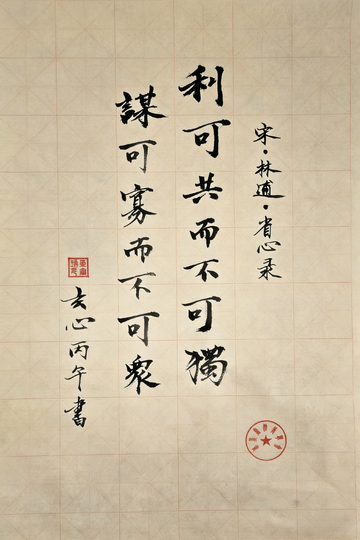 宋·林逋·省心录
利可共而不可獨
謀可寡而不可眾
玄心丙午書